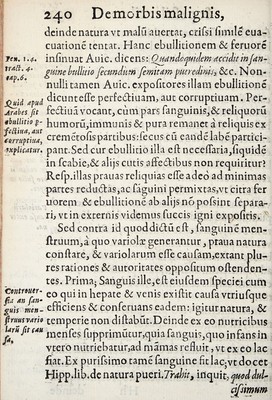 240 De morbis malignis,
deinde natura vt malū auertat, crisi similē eua-
cuationē tentat. Hanc ebullitionem & feruorē
insinuat Auic. dicens: Quandoquidem accidit in san-
guine bullitio secundum semitam putredinis, &c. Non-
nulli tamen Auic. expositores illam ebullitionē
dicunt esse perfectiuam, aut corruptiuam. Per-
fectiuā vocant, cùm pars sanguinis, & reliquorū
humorū, immunis & pura remanet à reliquis ex
crementosis partibus: secus cū eandē labē partici-
pant. Sed cur ebullitio illa est necessaria, siquidē
in scabie, & alijs cutis affectibus non requiritur?
Resp. illas prauas reliquias esse adeò ad minimas
partes reductas, ac sāguini permixtas, vt citra fer
uorem & ebullitionē ab alijs nō possint separa-
ri, vt in externis videmus succis igni expositis.
Sed contra id quod dictū est, sanguinē men-
struum, à quo variolæ generantur, praua natura
constare, & variolarum esse causam, extant plu-
res rationes & autoritates oppositum ostenden-
tes. Prima; Sanguis ille, est eiusdem speciei cum
eo qui in hepate & venis existit causa vtriusque
efficiens & conseruans eadem: igitur natura, &
temperie non distabūt. Deinde ex eo nutricibus
menses supprimūtur, quia sanguis, quo infans in
vtero nutriebatur, ad māmas refluit, vt ex eo lac
fiat. Ex purissimo tamē sanguine fit lac, vt docet
Hipp. lib. de natura pueri. Trahit, inquit, quod dul-
cissimum
Fen. 1. 4.
tract. 4.
cap. 6.
Quid apud
Arabes sit
ebullitio p
fectiua, aut
corruptiua,
explicatur.
Controuer-
sia an san-
guis men-
struus vario
larū sit cau
sa,